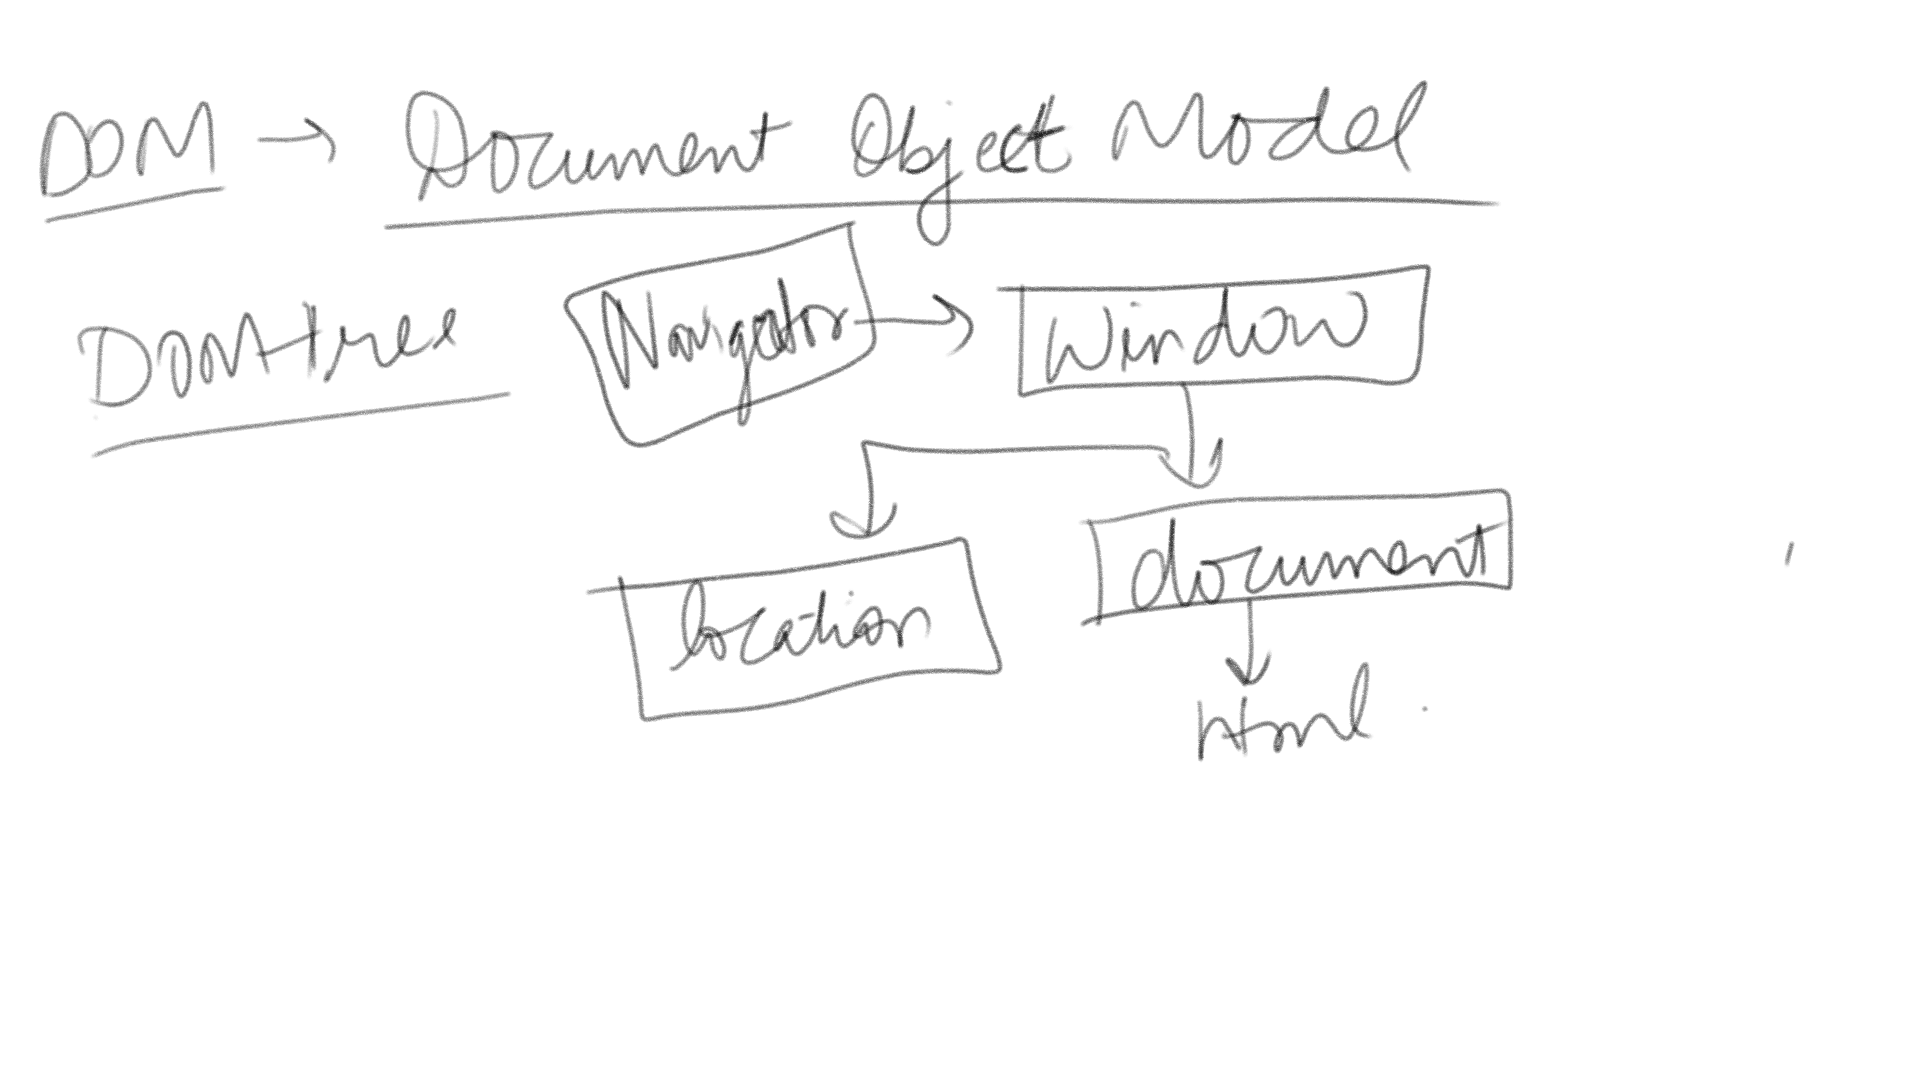 DOM → Document Object Model
DOM tree
Navigator → Window
location
document
Html